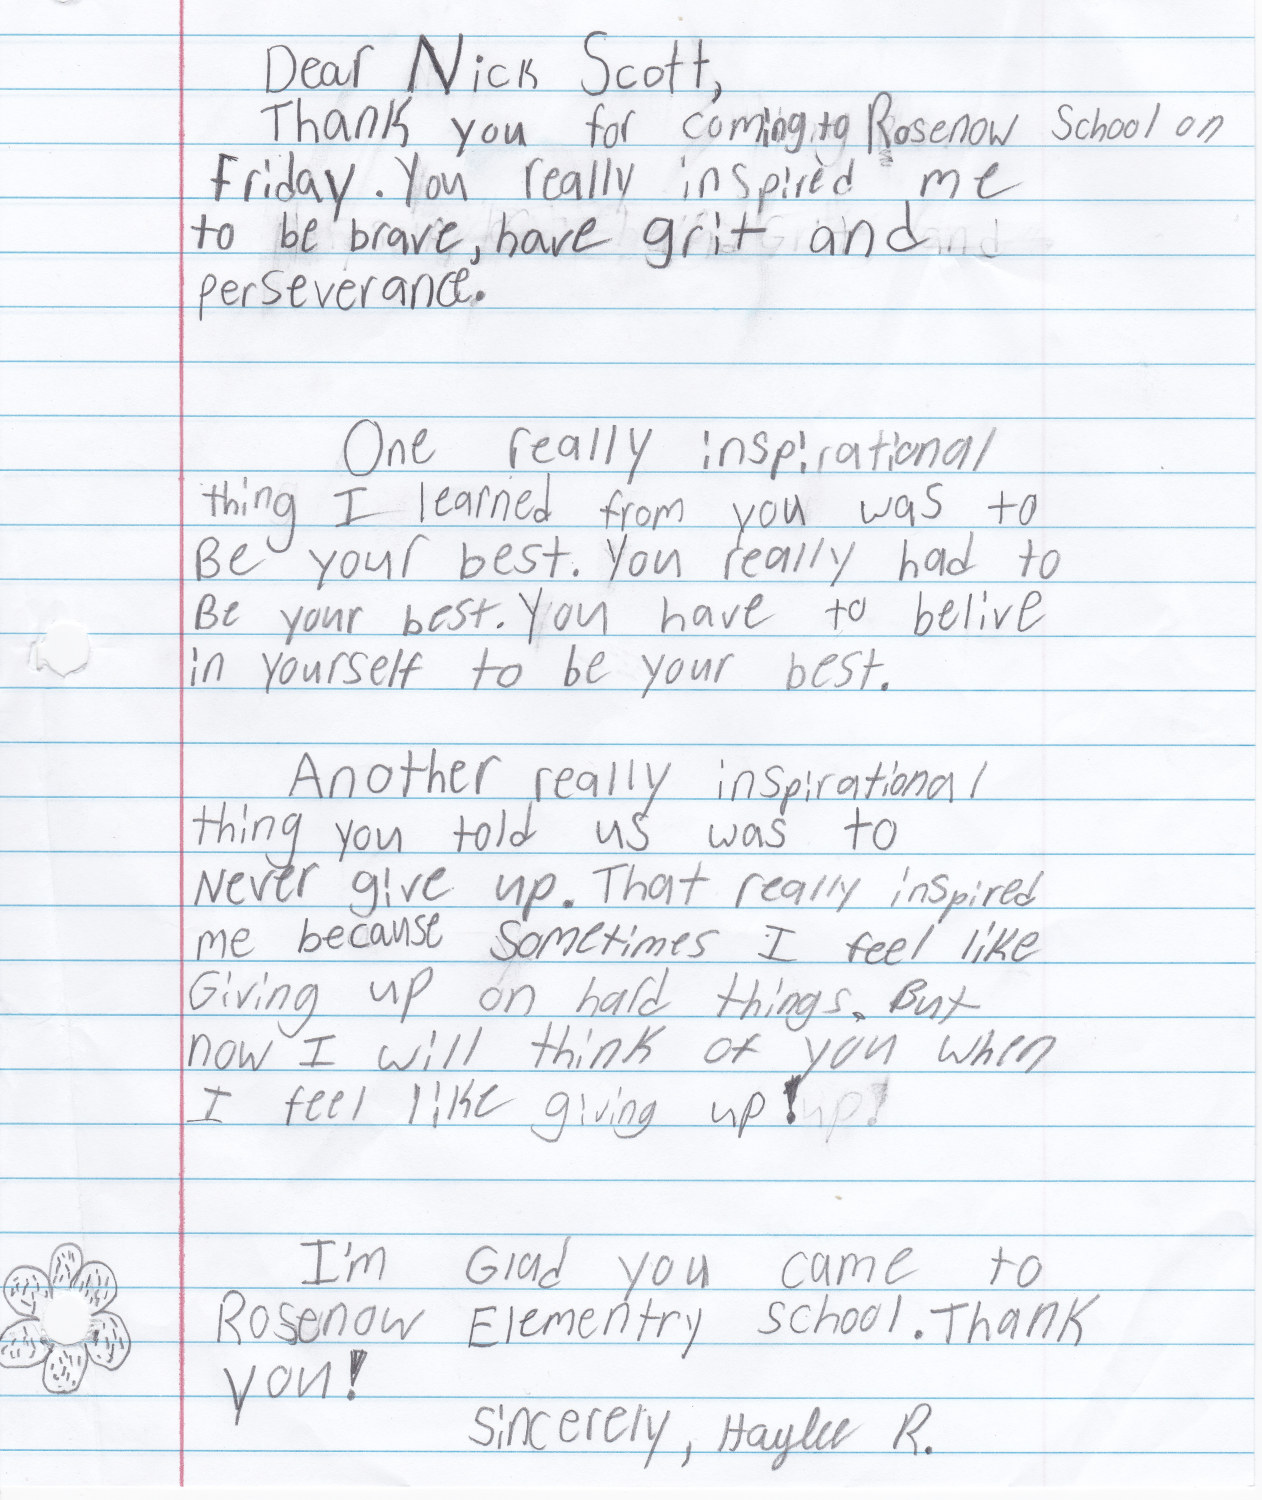 Dear Nick Scott,
Thank you for coming to Rosenow School on
Friday. You really inspired me
to be brave, have grit and
perseverance.
One really inspirational
thing I learned from you was to
Be your best. You really had to
Be your best. You have to belive
in yourself to be your best.
Another really inspirational
thing you told us was to
Never give up. That really inspired
me because sometimes I feel like
Giving up on hard things. But
now I will think of you when
I feel like giving up!
I'm Glad you came to
Rosenow Elementry school. Thank
you!
Sincerely, Haylee R.